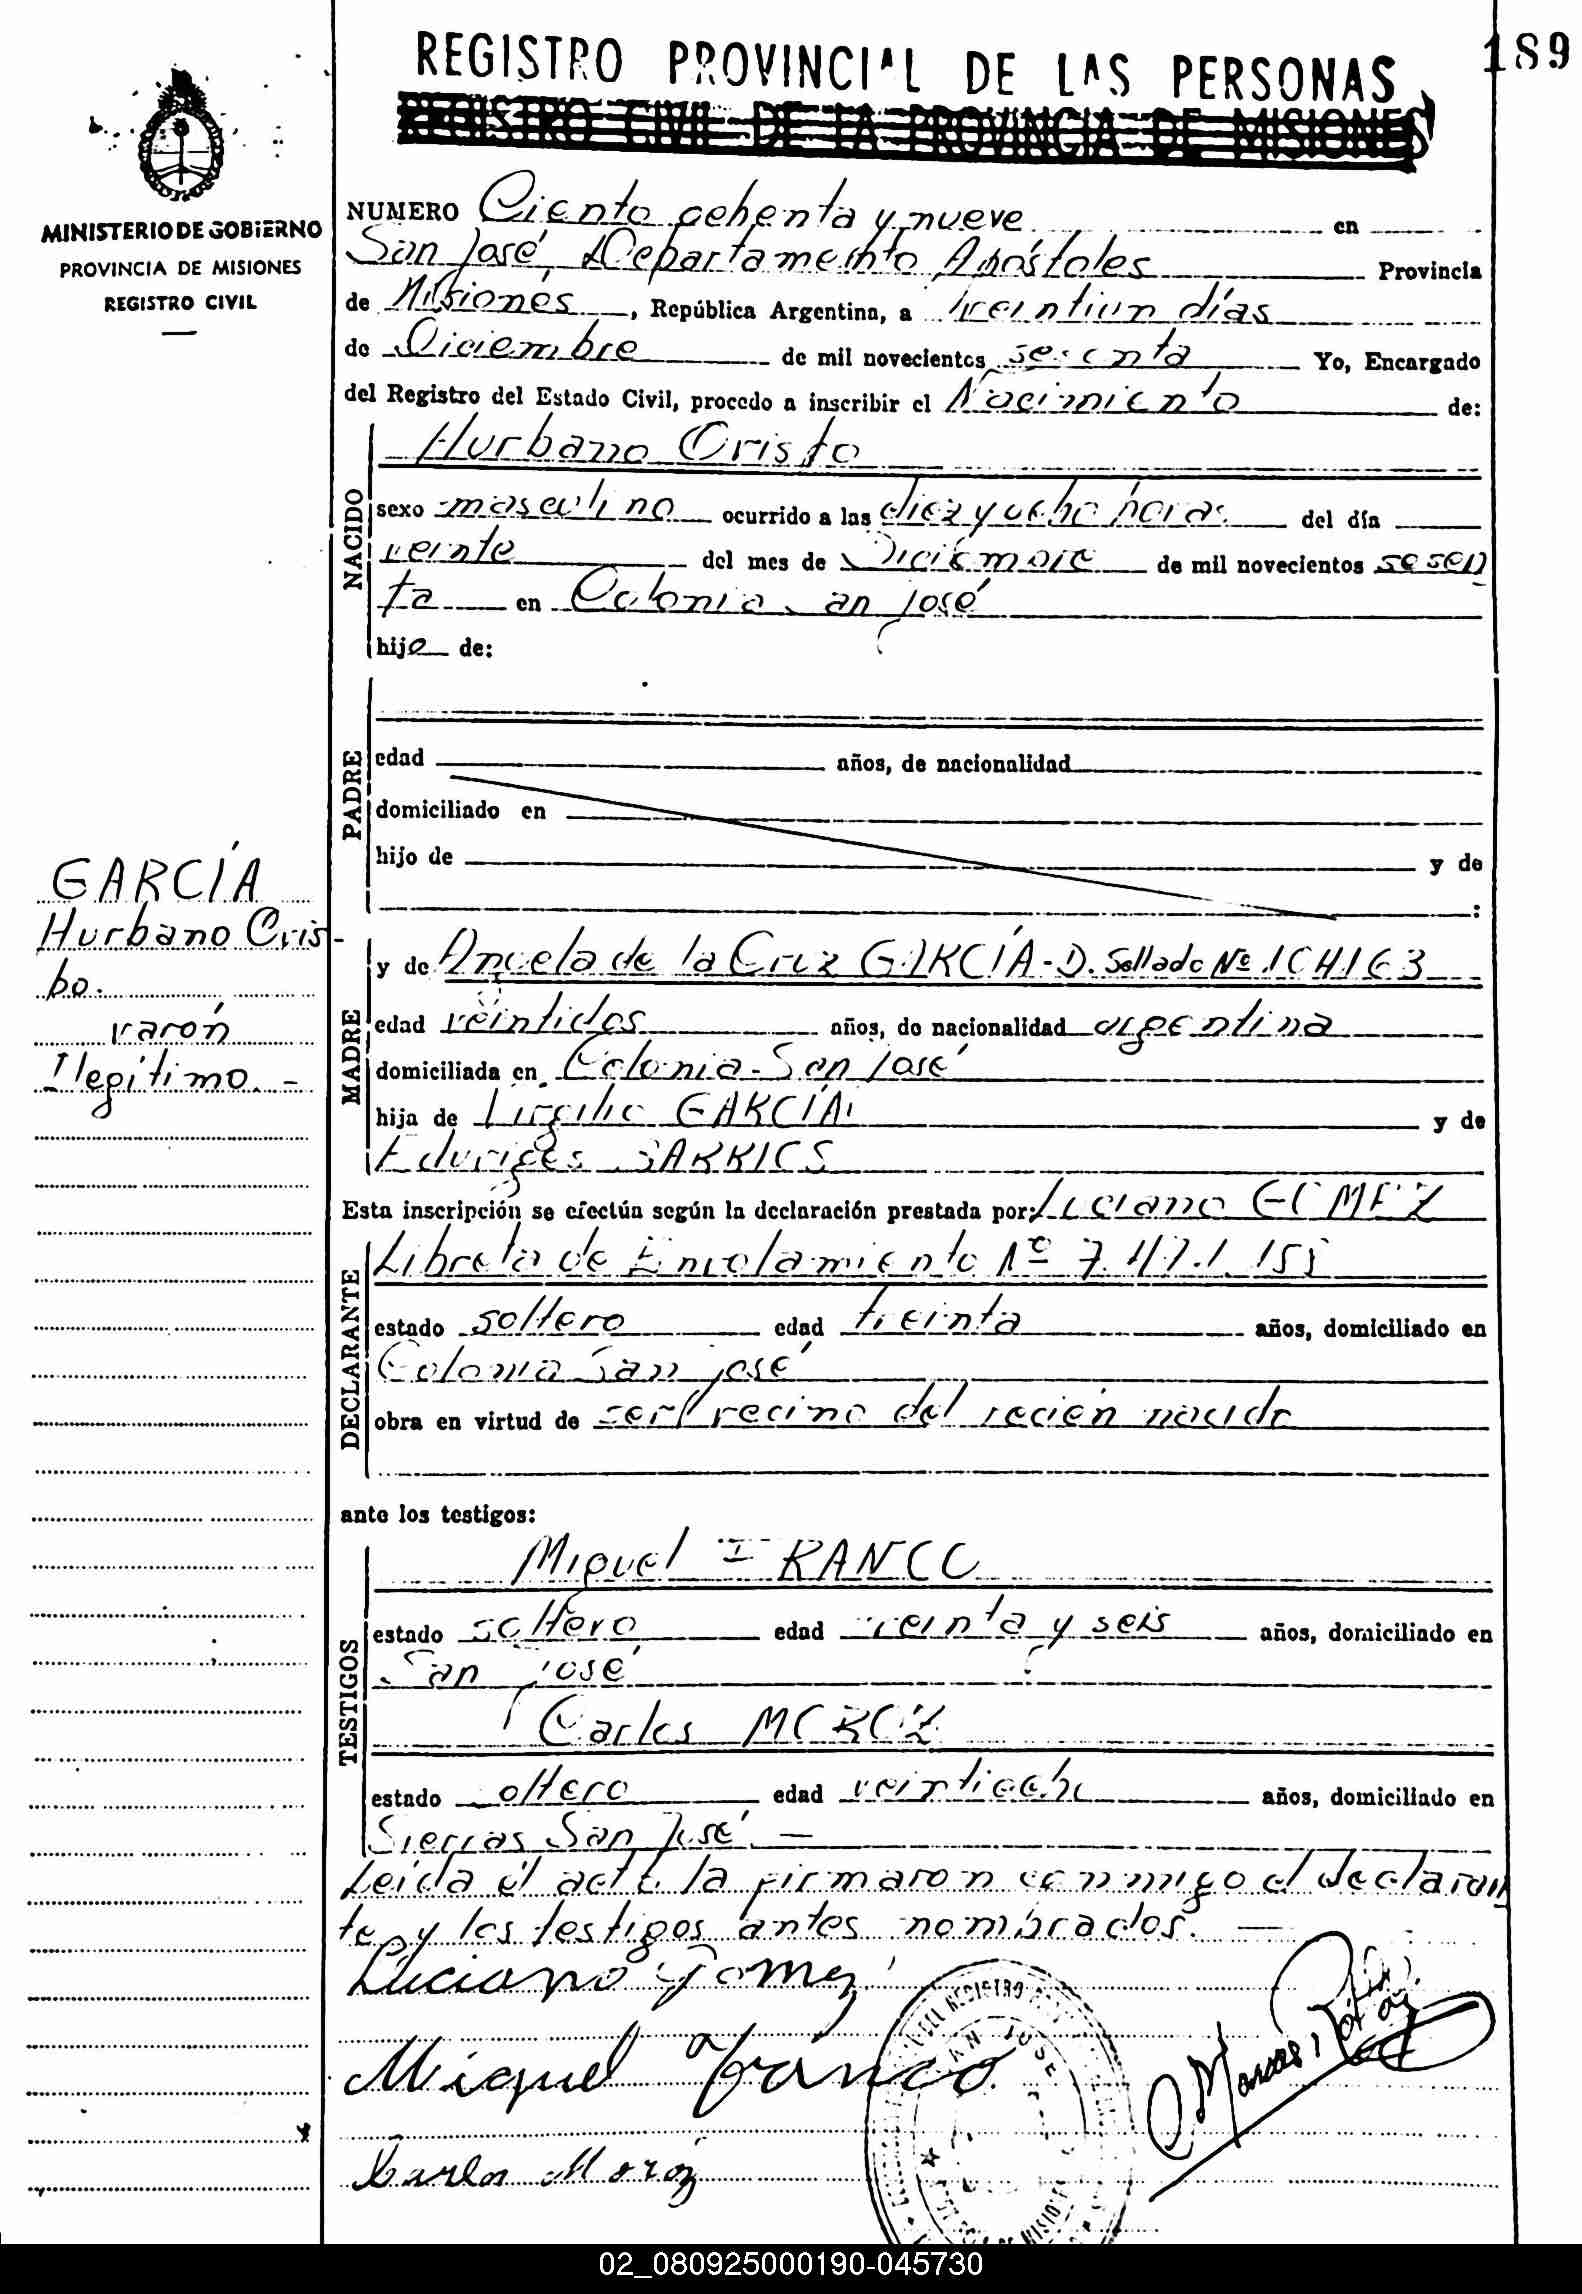 189
REGISTRO PROVINCIAL DE LAS PERSONAS
REGISTRO CIVIL DE LA PROVINCIA DE MISIONES
MINISTERIO DE GOBIERNO
PROVINCIA DE MISIONES
REGISTRO CIVIL
NUMERO Ciento ochenta y nueve en
San José, Departamento Apóstoles Provincia
de Misiones, República Argentina, a treintiun días
de Diciembre de mil novecientos sesenta Yo, Encargado
del Registro del Estado Civil, procedo a inscribir el Nacimiento de:
NACIDO
Hurbano Cristo
sexo masculino ocurrido a las diez y ocho horas del día
veinte del mes de Diciembre de mil novecientos sesen
ta en Colonia San José
hijo de:
PADRE
edad años, de nacionalidad
domiciliado en
hijo de y de
:
GARCÍA
Hurbano Cris-
to.
varón
Ilegítimo.-
MADRE
y de Angela de la Cruz GARCÍA-D. Sellado Nº
edad veintidos años, de nacionalidad argentina
domiciliada en Colonia San José
hija de Virgilio GARCÍA y de
Eduviges BARRIOS
Esta inscripción se efectúa según la declaración prestada por: Luciano GOMEZ
DECLARANTE
Libreta de Enrolamiento Nº
estado soltero edad treinta años, domiciliado en
Colonia San José
obra en virtud de ser vecino del recién nacido
ante los testigos:
TESTIGOS
Miguel FRANCO
estado soltero edad treinta y seis años, domiciliado en
San José
Carlos MOROZ
estado soltero edad veintiocho años, domiciliado en
Sierras San José.—
Leída el acta la firmaron conmigo el declaran
te y los testigos antes nombrados.—
Luciano Gomez
Miguel Franco
Carlos Moroz
DEL REGISTRO
SAN JOSE
MISIONES
02_080925000190-045730